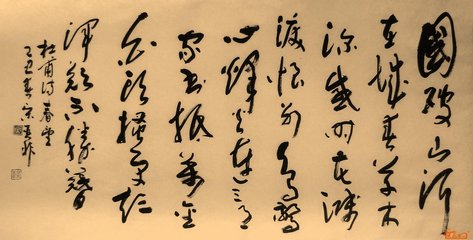 國破山河
在城春草木
深感時花濺
淚恨別鳥驚
心烽火連三月
家書抵萬金
白頭搔更短
渾欲不勝簪
杜甫詩春望
乙丑春